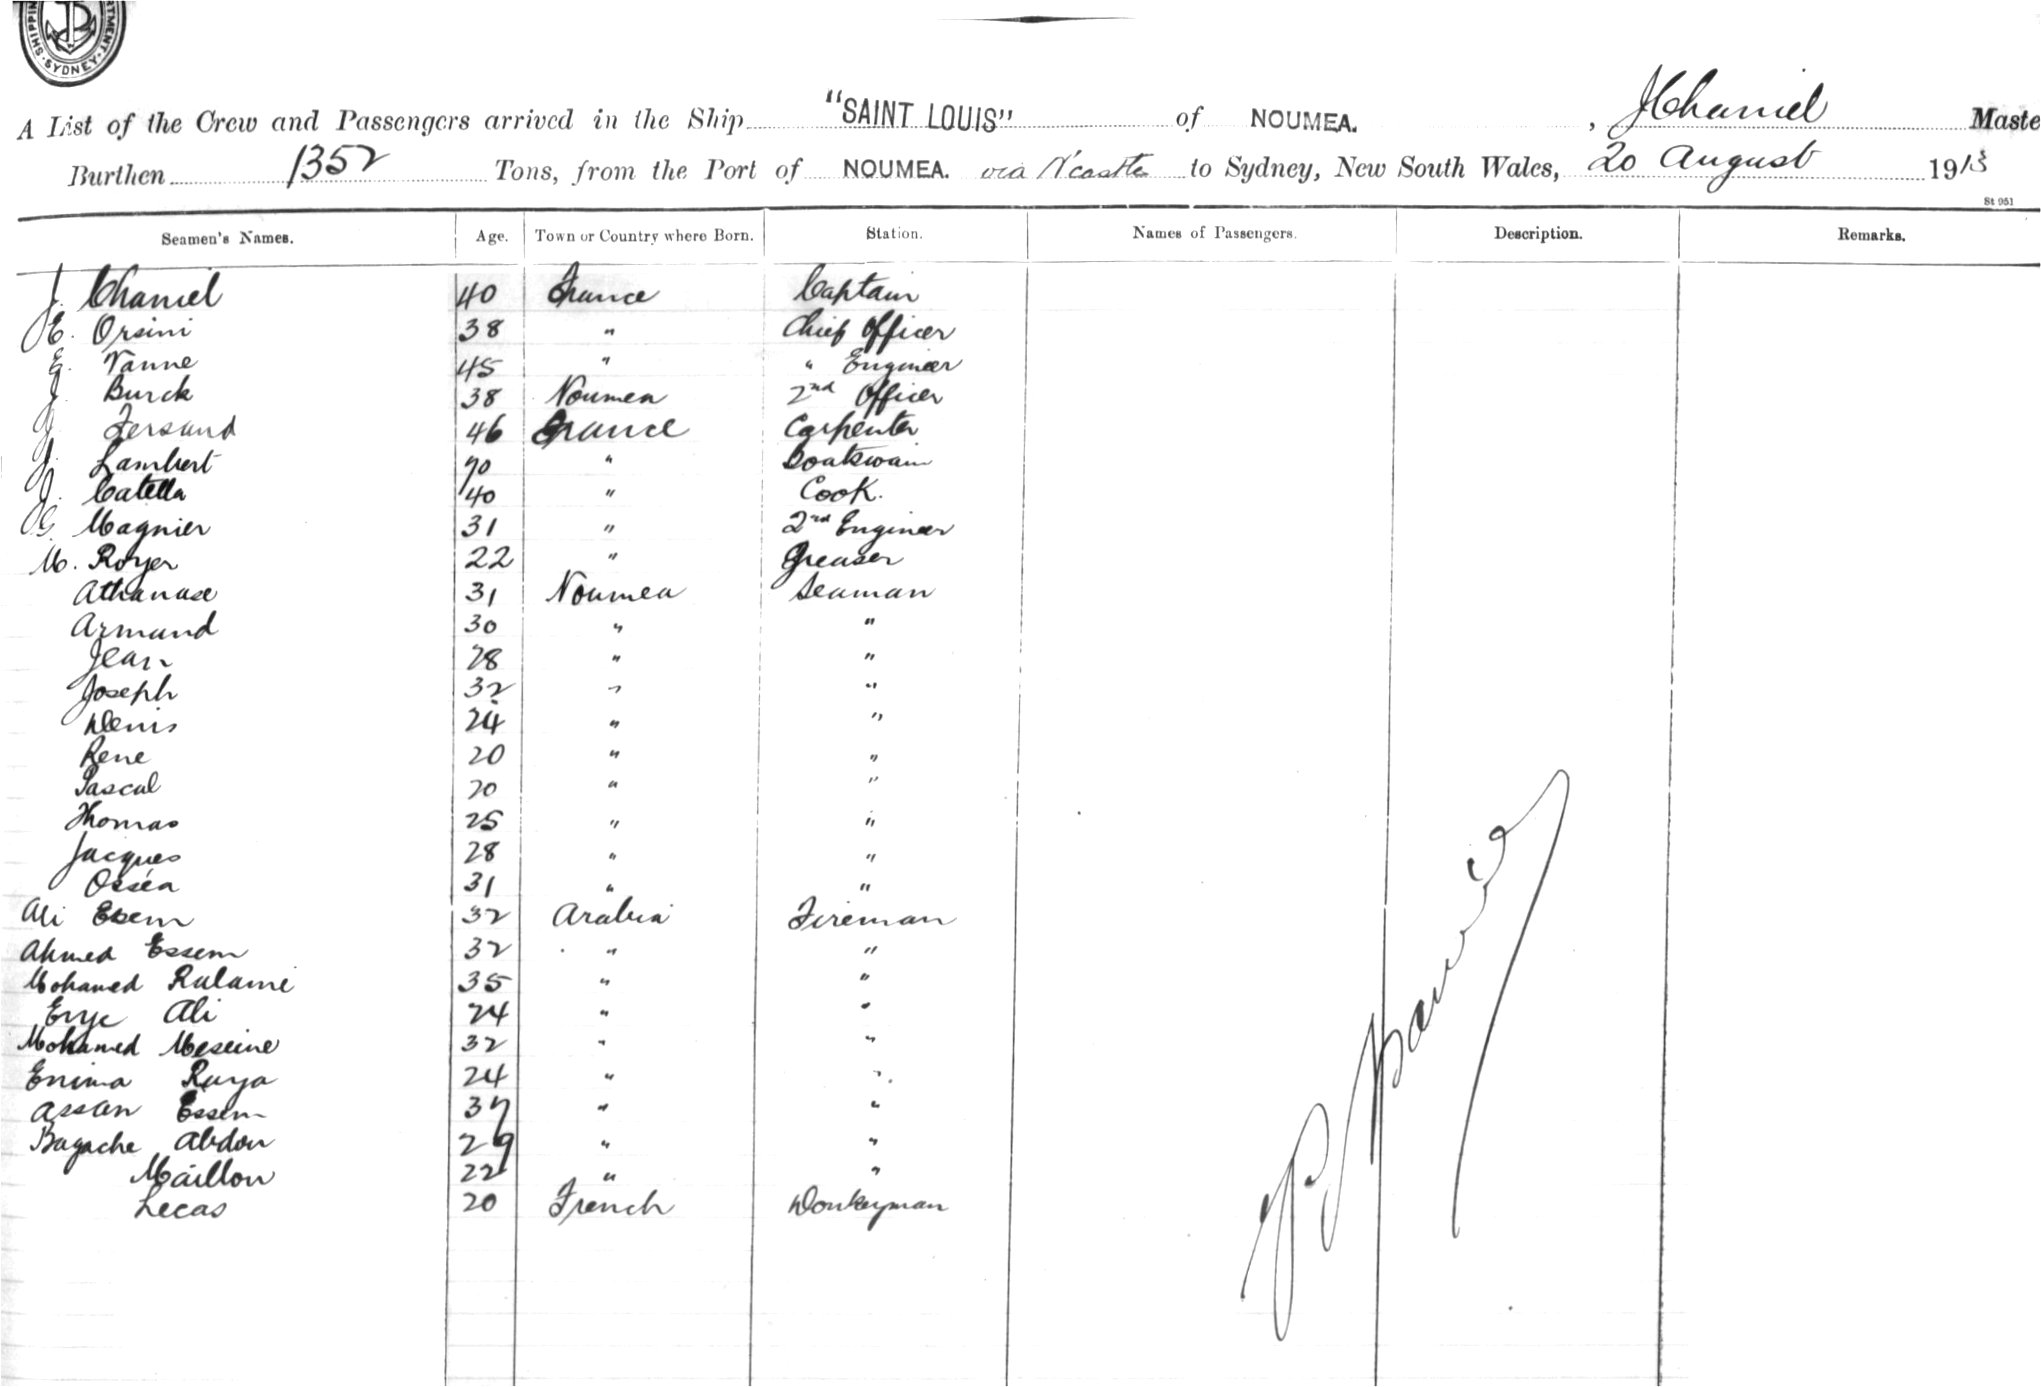 SHIPPIN RTMENT. SYDNEY.
A List of the Crew and Passengers arrived in the Ship "SAINT LOUIS" of NOUMEA. , J Chaniel Maste
Burthen 1352 Tons, from the Port of NOUMEA. via N'castle to Sydney, New South Wales, 20 August 1913
St 951
Seamen's Names. Age. Town or Country where Born. Station. Names of Passengers. Description. Remarks.
J. Chaniel 40 France Captain
E. Orsini 38 " Chief Officer
E. Vanne 45 " " Engineer
J. Burck 38 Noumea 2nd Officer
J. Fersand 46 France Carpenter
J. Lambert 70 " Boatswain
J. Catella 40 " Cook.
G. Magnier 31 " 2nd Engineer
M. Royer 22 " Greaser
Athanase 31 Noumea Seaman
Armand 30 " "
Jean 28 " "
Joseph 32 " "
Denis 24 " "
Rene 20 " "
Pascal 20 " "
Thomas 25 " "
Jacques 28 " "
Osséa 31 " "
Ali Esem 32 Arabia Fireman
Ahmed Essem 32 " "
Mohamed Ralami 35 " "
Ali 24 " "
Mohamed Meseine 32 " "
Enima Raya 24 " "
Assan Essem 37 " "
Bagache Abdou 29 " "
Maillon 22 " "
Lecas 20 French Donkeyman